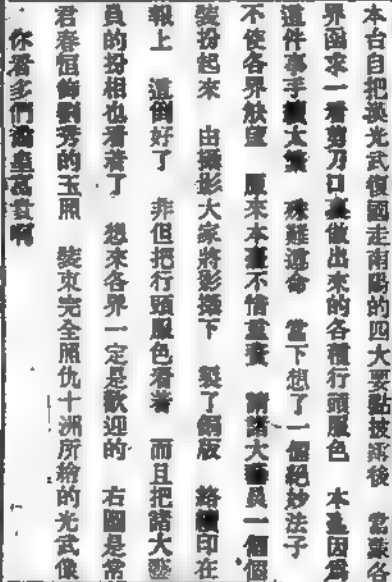 本台自把漢光武復國走南陽的四大要點披露後　當蒙各
界函求一看剪刀口裏做出來的各種行頭服色　本臺因爲
這件事手續太繁　殊難遵命　當下想了一個絕妙法子
不使各界觖望　原來本臺不惜重資　請諸大藝員一個個
裝扮起來　由攝影大家將影攝下　製了銅版　絡續印在
報上　這倒好了　非但把行頭服色看著　而且把諸大藝
員的扮相也看著了　想來各界一定是歡迎的　右圖是常
君春恒飾劉秀的玉照　裝束完全照仇十洲所繪的光武像
你看多們富貴啊